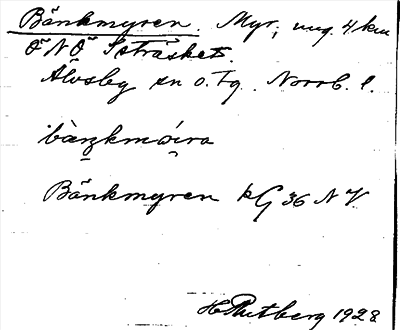 Bänkmyren. Myr, ung. 4 km
ÖNÖ Isträsket.
Älvsby sn o. Tg. Norrb. l.
bàŋkmøira
Bänkmyren kG 36 NV
H. Rutberg 1928